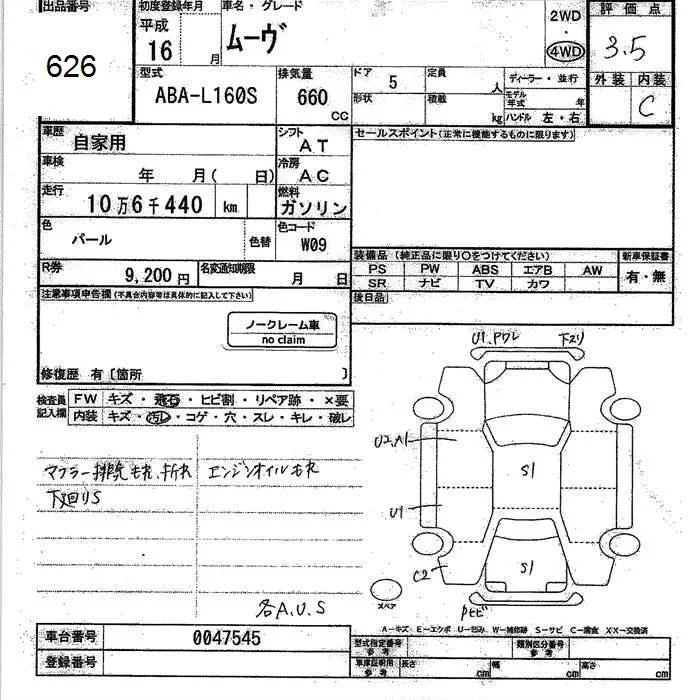 出品番号
626
初度登録年月
平成
16 月
車名・グレード
ムーヴ
2WD
・
4WD
評価点
3.5
型式
ABA-L160S
排気量
660
CC
ドア
5
定員
人
ディーラー・並行
形状
積載
kg
モデル
年式
年
ハンドル 左・右
外装 内装
C
車歴
自家用
シフト
AT
セールスポイント(正常に機能するものに限ります)
車検
年 月( 日)
冷房
AC
走行
10万6千440 km
燃料
ガソリン
色
パール
色替
色コード
W09
装備品 (純正品に限り○をつけてください)
新車保証書
PS PW ABS エアB AW
SR ナビ TV カワ
有・無
R券
9,200円
名変通知期限
月 日
後日品
注意事項申告欄(不具合内容等は具体的に記入して下さい)
ノークレーム車
no claim
修復歴 有〔箇所 〕
検査員
記入欄
FW キズ・飛石・ヒビ割・リペア跡・×要
内装 キズ・汚レ・コゲ・穴・スレ・キレ・破レ
マフラー排気モレ、折レ
エンジンオイルモレ
下廻りS
各A.U.S
U1.Pワレ
下スリ
U2.A1
S1
U1
C2
S1
スペア
Pヒビ
A−キズ E−エクボ U−凹み W−補修跡 S−サビ C−腐食 XX−交換済
車台番号
0047545
登録番号
型式指定番号
参考
類別区分番号
参考
車庫証明用
参考
長さ cm 幅 cm 高さ cm